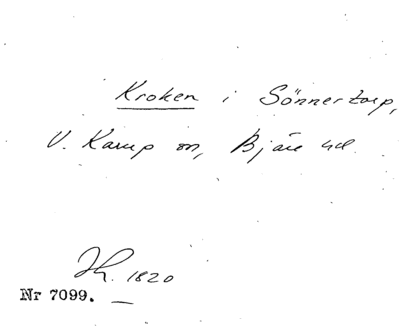 Kroken i Sönnertorp,
V. Karup sn, Bjäre hd.
Jh. 1820
Nr 7099.